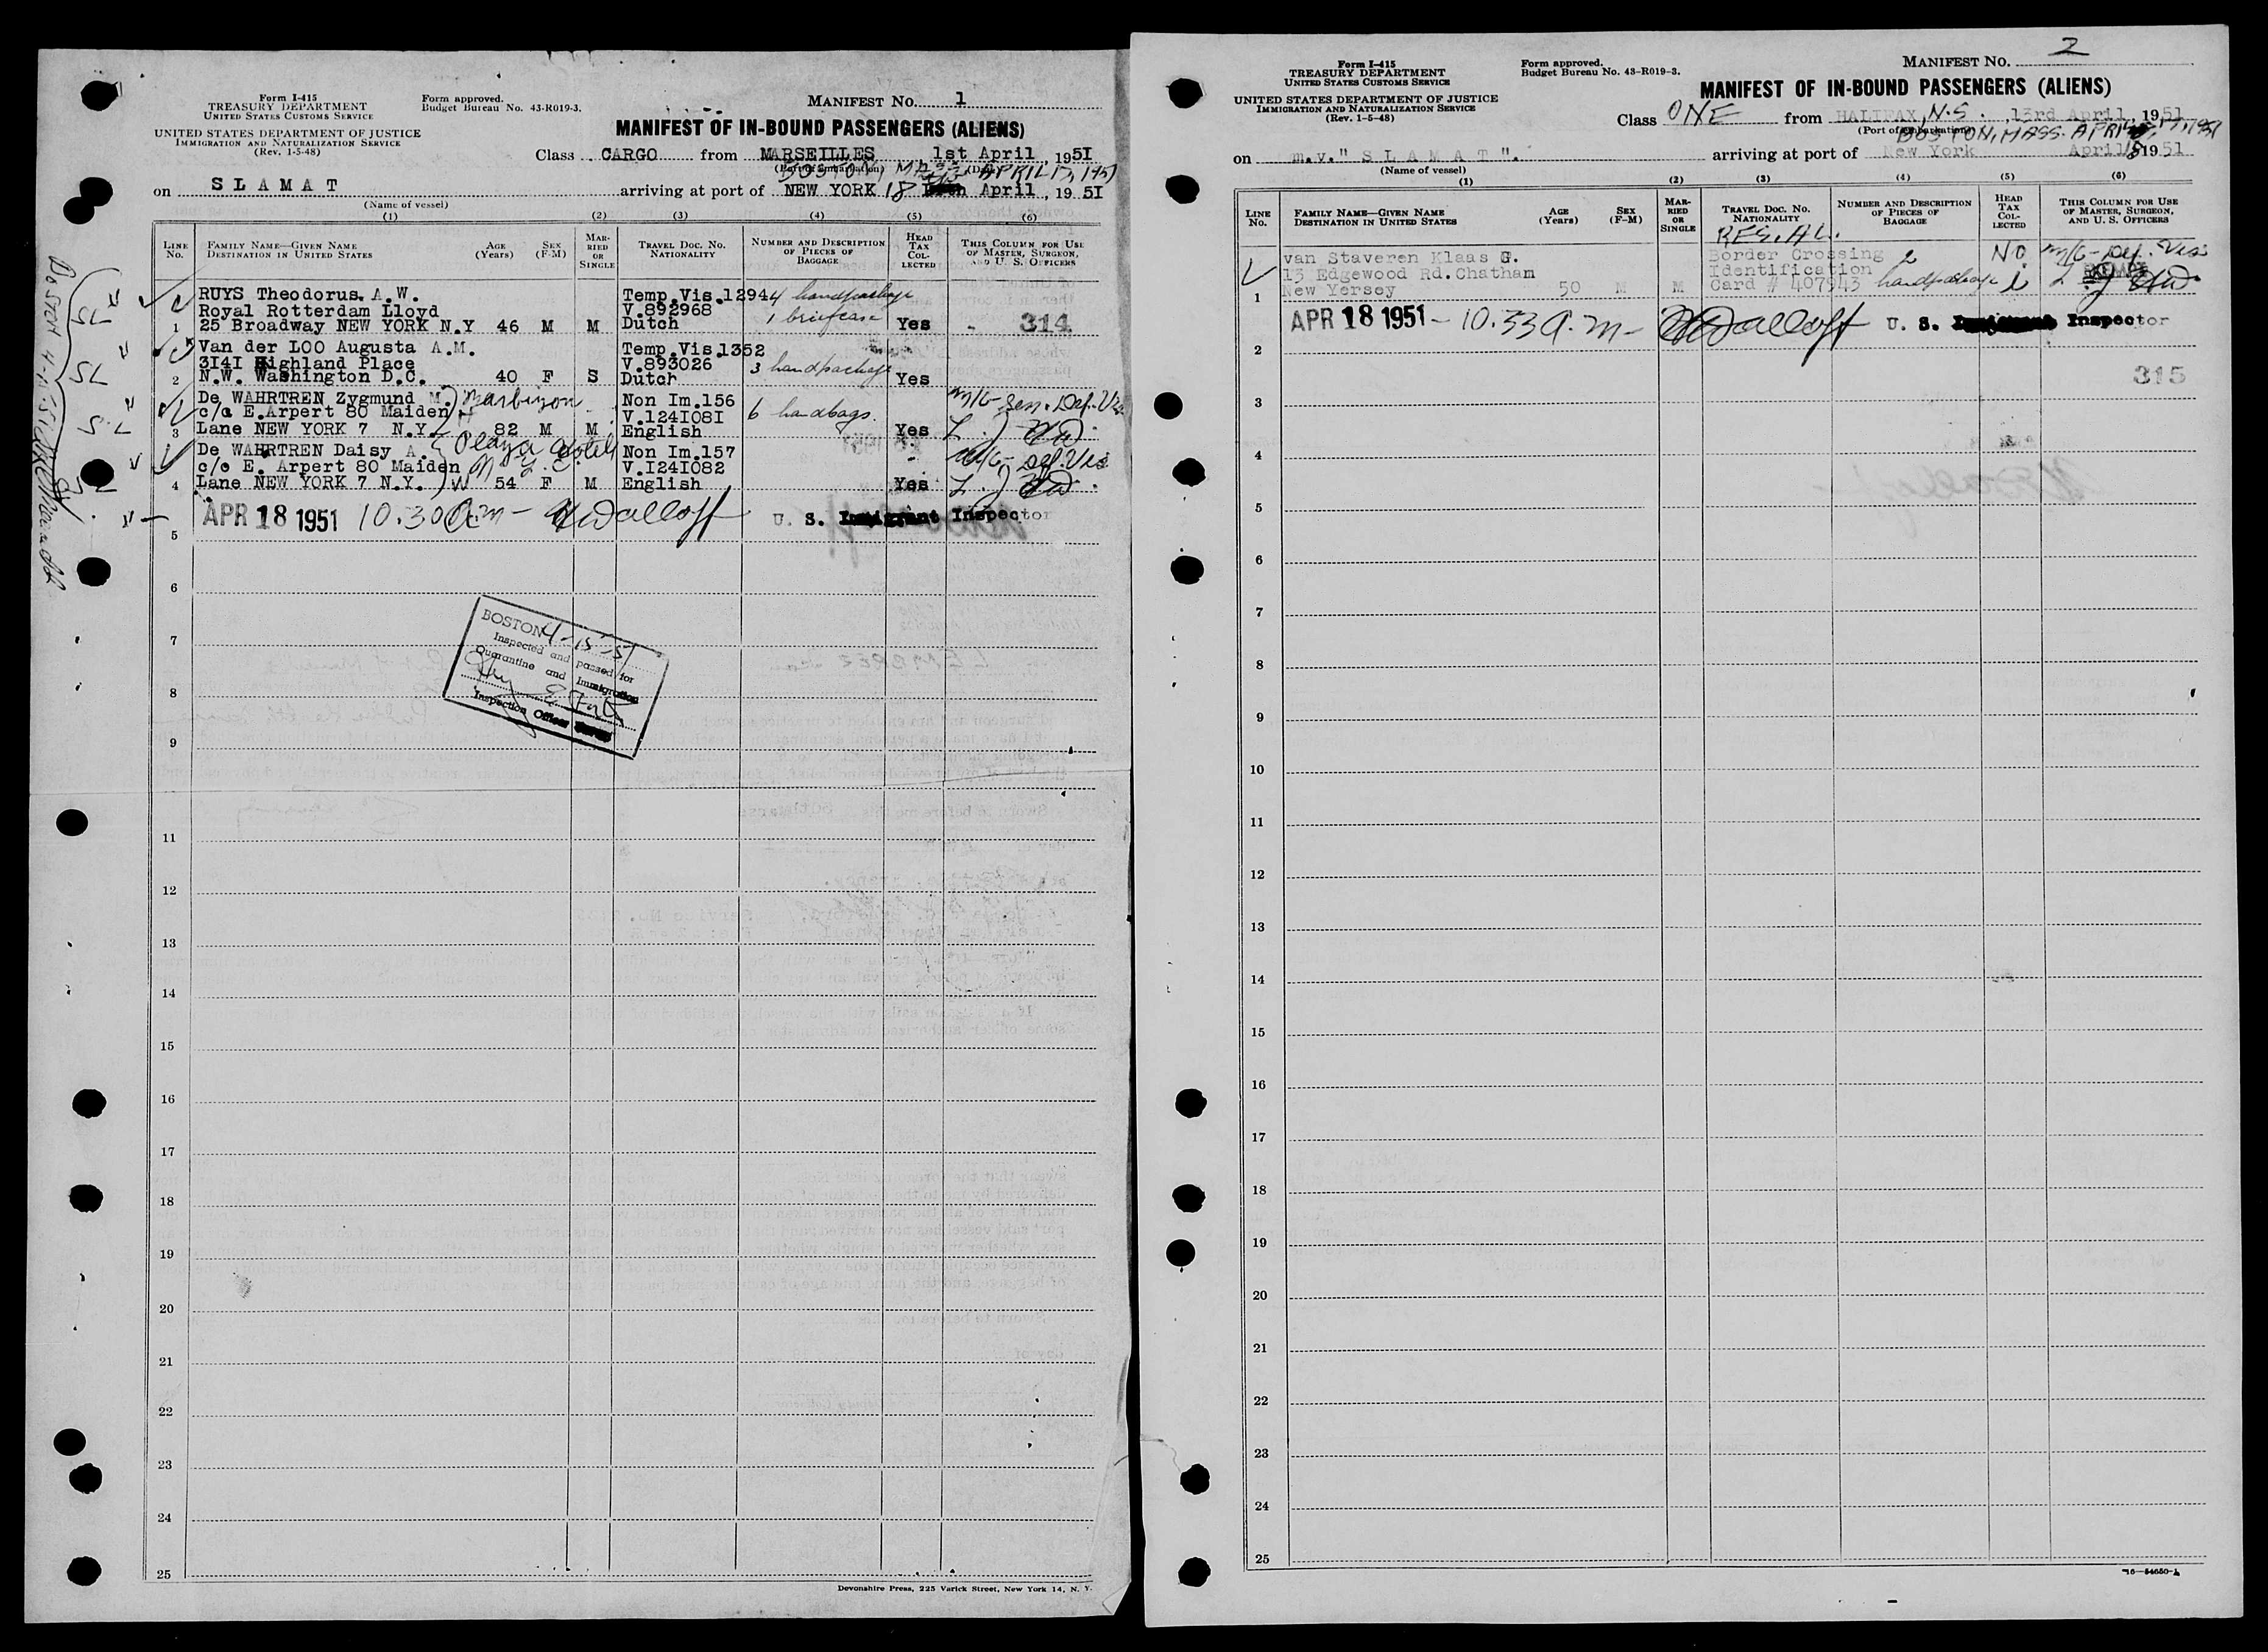 Form I-415
TREASURY DEPARTMENT
UNITED STATES CUSTOMS SERVICE
UNITED STATES DEPARTMENT OF JUSTICE
IMMIGRATION AND NATURALIZATION SERVICE
(Rev. 1-5-48)
Form approved.
Budget Bureau No. 43-R019-3.
MANIFEST NO. 1
MANIFEST OF IN-BOUND PASSENGERS (ALIENS)
Class CARGO from MARSEILLES 1st April, 1951
BOSTON, MASS. APRIL 17, 1951
(Port of Embarkation) (Date)
on SLAMAT arriving at port of NEW YORK 18 April, 1951
(Name of vessel)
(1) (2) (3) (4) (5) (6)
LINE No.
FAMILY NAME—GIVEN NAME
DESTINATION IN UNITED STATES
AGE (Years)
SEX (F-M)
MARRIED OR SINGLE
TRAVEL DOC. NO.
NATIONALITY
NUMBER AND DESCRIPTION OF PIECES OF BAGGAGE
HEAD TAX COLLECTED
THIS COLUMN FOR USE OF MASTER, SURGEON, AND U. S. OFFICERS
RUYS Theodorus. A.W. Temp.Vis.12944 4 handpackage
Royal Rotterdam Lloyd V.892968 1 briefcase
1 25 Broadway NEW YORK N.Y 46 M M Dutch Yes 314
Van der LOO Augusta A.M. Temp.Vis.1352
3141 Highland Place V.893026 3 handpackage
2 N.W. Washington D.C. 40 F S Dutch Yes
De WAHRTREN Zygmund M. Non Im.156
c/o E.Arpert 80 Maiden V.1241081 6 handbags.
3 Lane NEW YORK 7 N.Y. 82 M M English Yes
De WAHRTREN Daisy A. Non Im.157
c/o E. Arpert 80 Maiden V.1241082
4 Lane NEW YORK 7 N.Y. W 54 F M English Yes
APR 18 1951 10.30 a.m - U. S. Immigrant Inspector
5
6
7
8
9
10
11
12
13
14
15
16
17
18
19
20
21
22
23
24
25
BOSTON 4-15-51
Inspected and passed for
Quarantine and Immigration
Inspection Officer
Devonshire Press, 225 Varick Street, New York 14, N. Y.
Form I-415
TREASURY DEPARTMENT
UNITED STATES CUSTOMS SERVICE
UNITED STATES DEPARTMENT OF JUSTICE
IMMIGRATION AND NATURALIZATION SERVICE
(Rev. 1-5-48)
Form approved.
Budget Bureau No. 43-R019-3.
MANIFEST NO. 2
MANIFEST OF IN-BOUND PASSENGERS (ALIENS)
Class ONE from HALIFAX, N.S., 13rd April, 1951
(Port of Embarkation)
BOSTON, MASS. APRIL 17, 1951
on m.v." S L A M A T ". arriving at port of New York April 18 1951
(Name of vessel)
(1) (2) (3) (4) (5) (6)
LINE No.
FAMILY NAME—GIVEN NAME
DESTINATION IN UNITED STATES
AGE (Years)
SEX (F-M)
MARRIED OR SINGLE
TRAVEL DOC. NO.
NATIONALITY
NUMBER AND DESCRIPTION OF PIECES OF BAGGAGE
HEAD TAX COLLECTED
THIS COLUMN FOR USE OF MASTER, SURGEON, AND U. S. OFFICERS
RES. AL.
van Staveren Klaas G. Border Crossing 2 NO
13 Edgewood Rd.Chatham Identification
1 New Yersey 50 M M Card # 407943 handpackage
APR 18 1951 - 10.33 a.m - U. S. Immigrant Inspector
2
315
3
4
5
6
7
8
9
10
11
12
13
14
15
16
17
18
19
20
21
22
23
24
25
16—54650-1